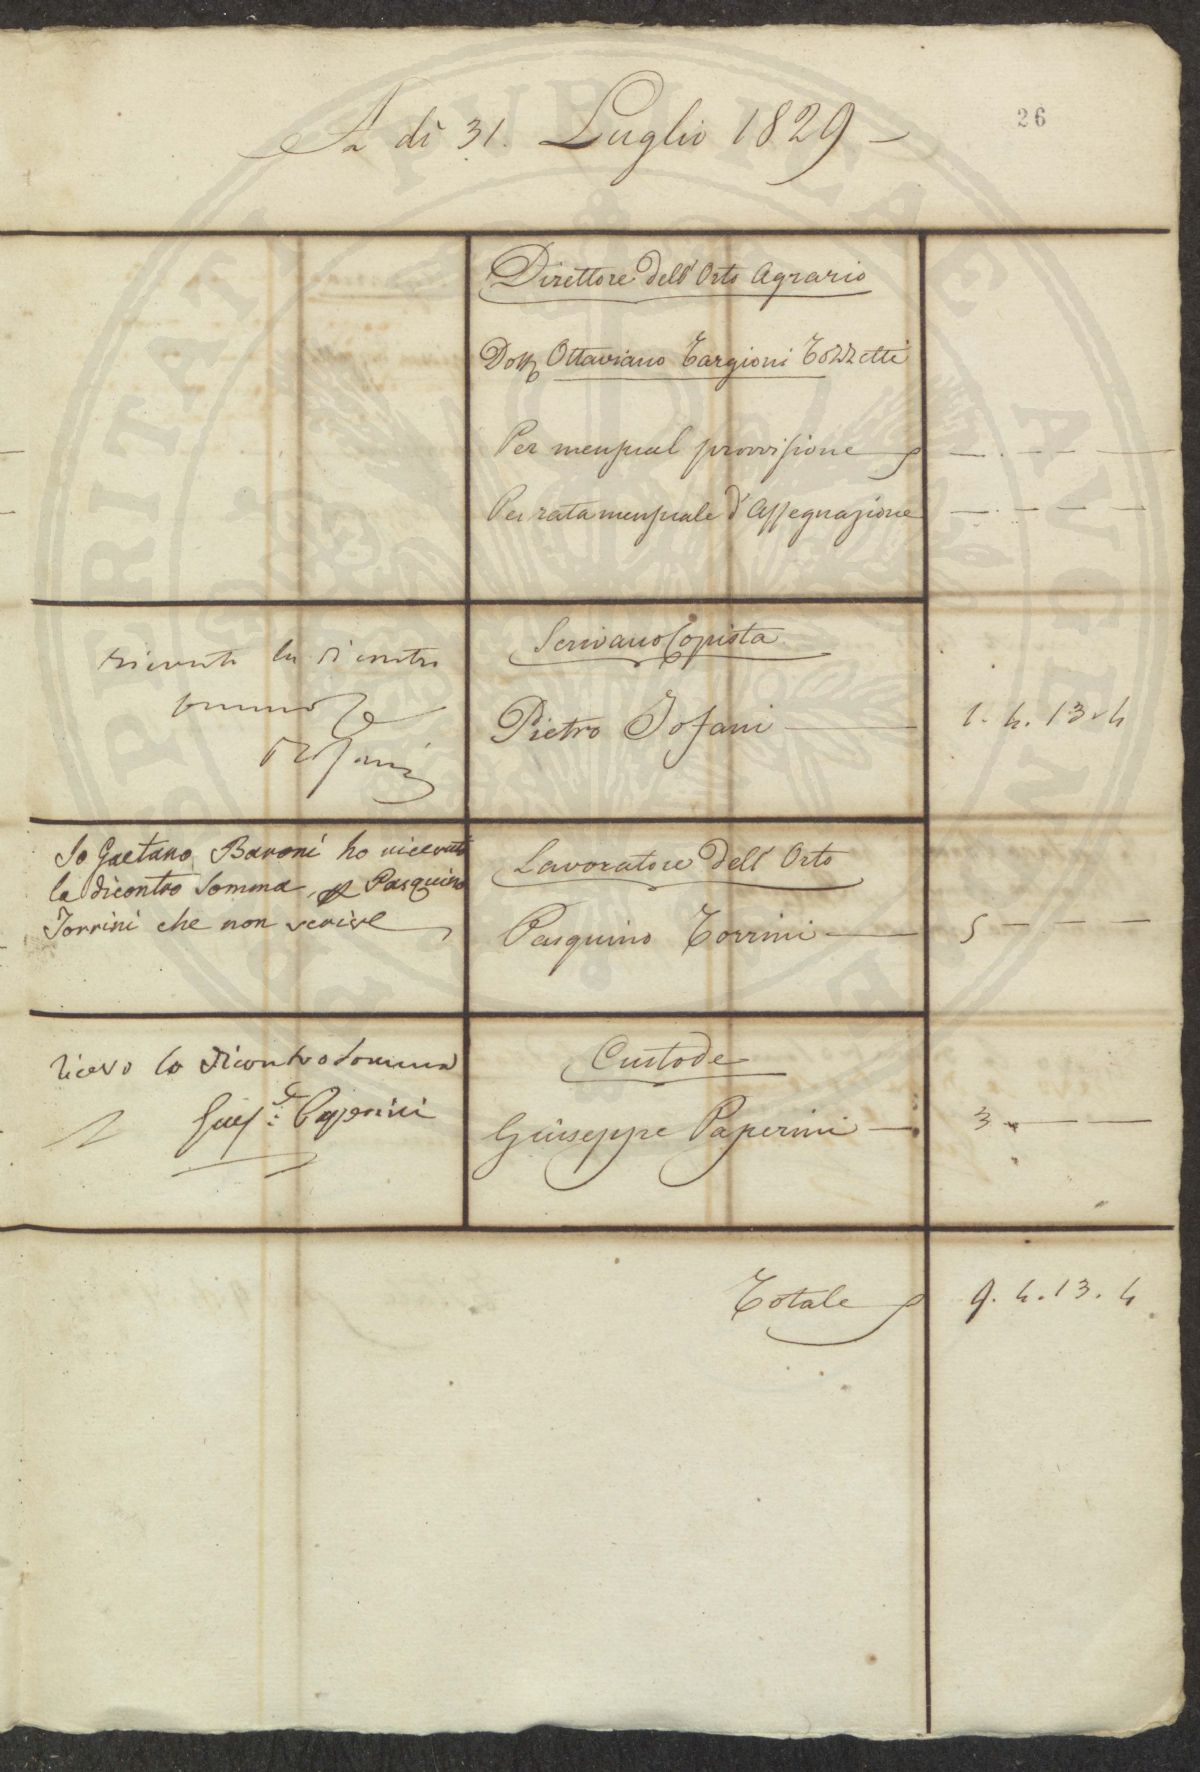 26
A dì 31. Luglio 1829
Direttore dell'Orto Agrario
Dott. Ottaviano Targioni Tozzetti
Per mensual provvisione — . — — —
Per rata mensuale d'Assegnazione — . — — —
Scrivano Copista
ricevuto la dicontro
somma
Pietro Tofani — 1. 4. 13. 4
Io Gaetano Baroni ho ricevuto
la dicontro Somma p Pasquino
Torrini che non scrive
Lavoratore dell'Orto
Pasquino Torrini — 5 — . — —
ricevo la dicontro Somma
Gius.e Paperini
Custode
Giuseppe Paperini — 3 . — —
Totale 9. 4. 13. 4
PUBLICAE
PROSPERITATI
AVGENDAE